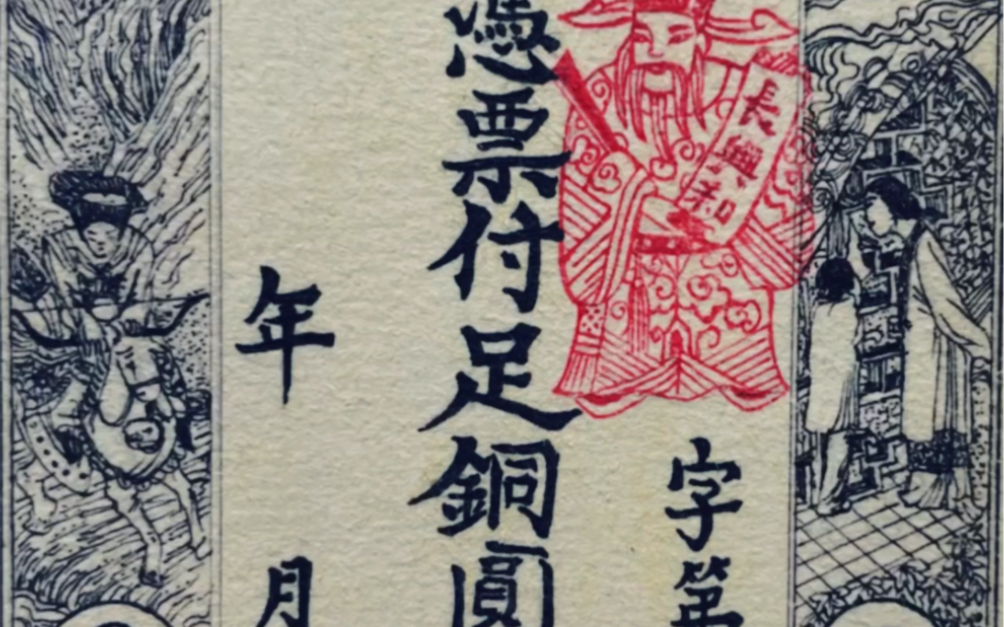 字第
長興和
憑票付足銅圓
年月